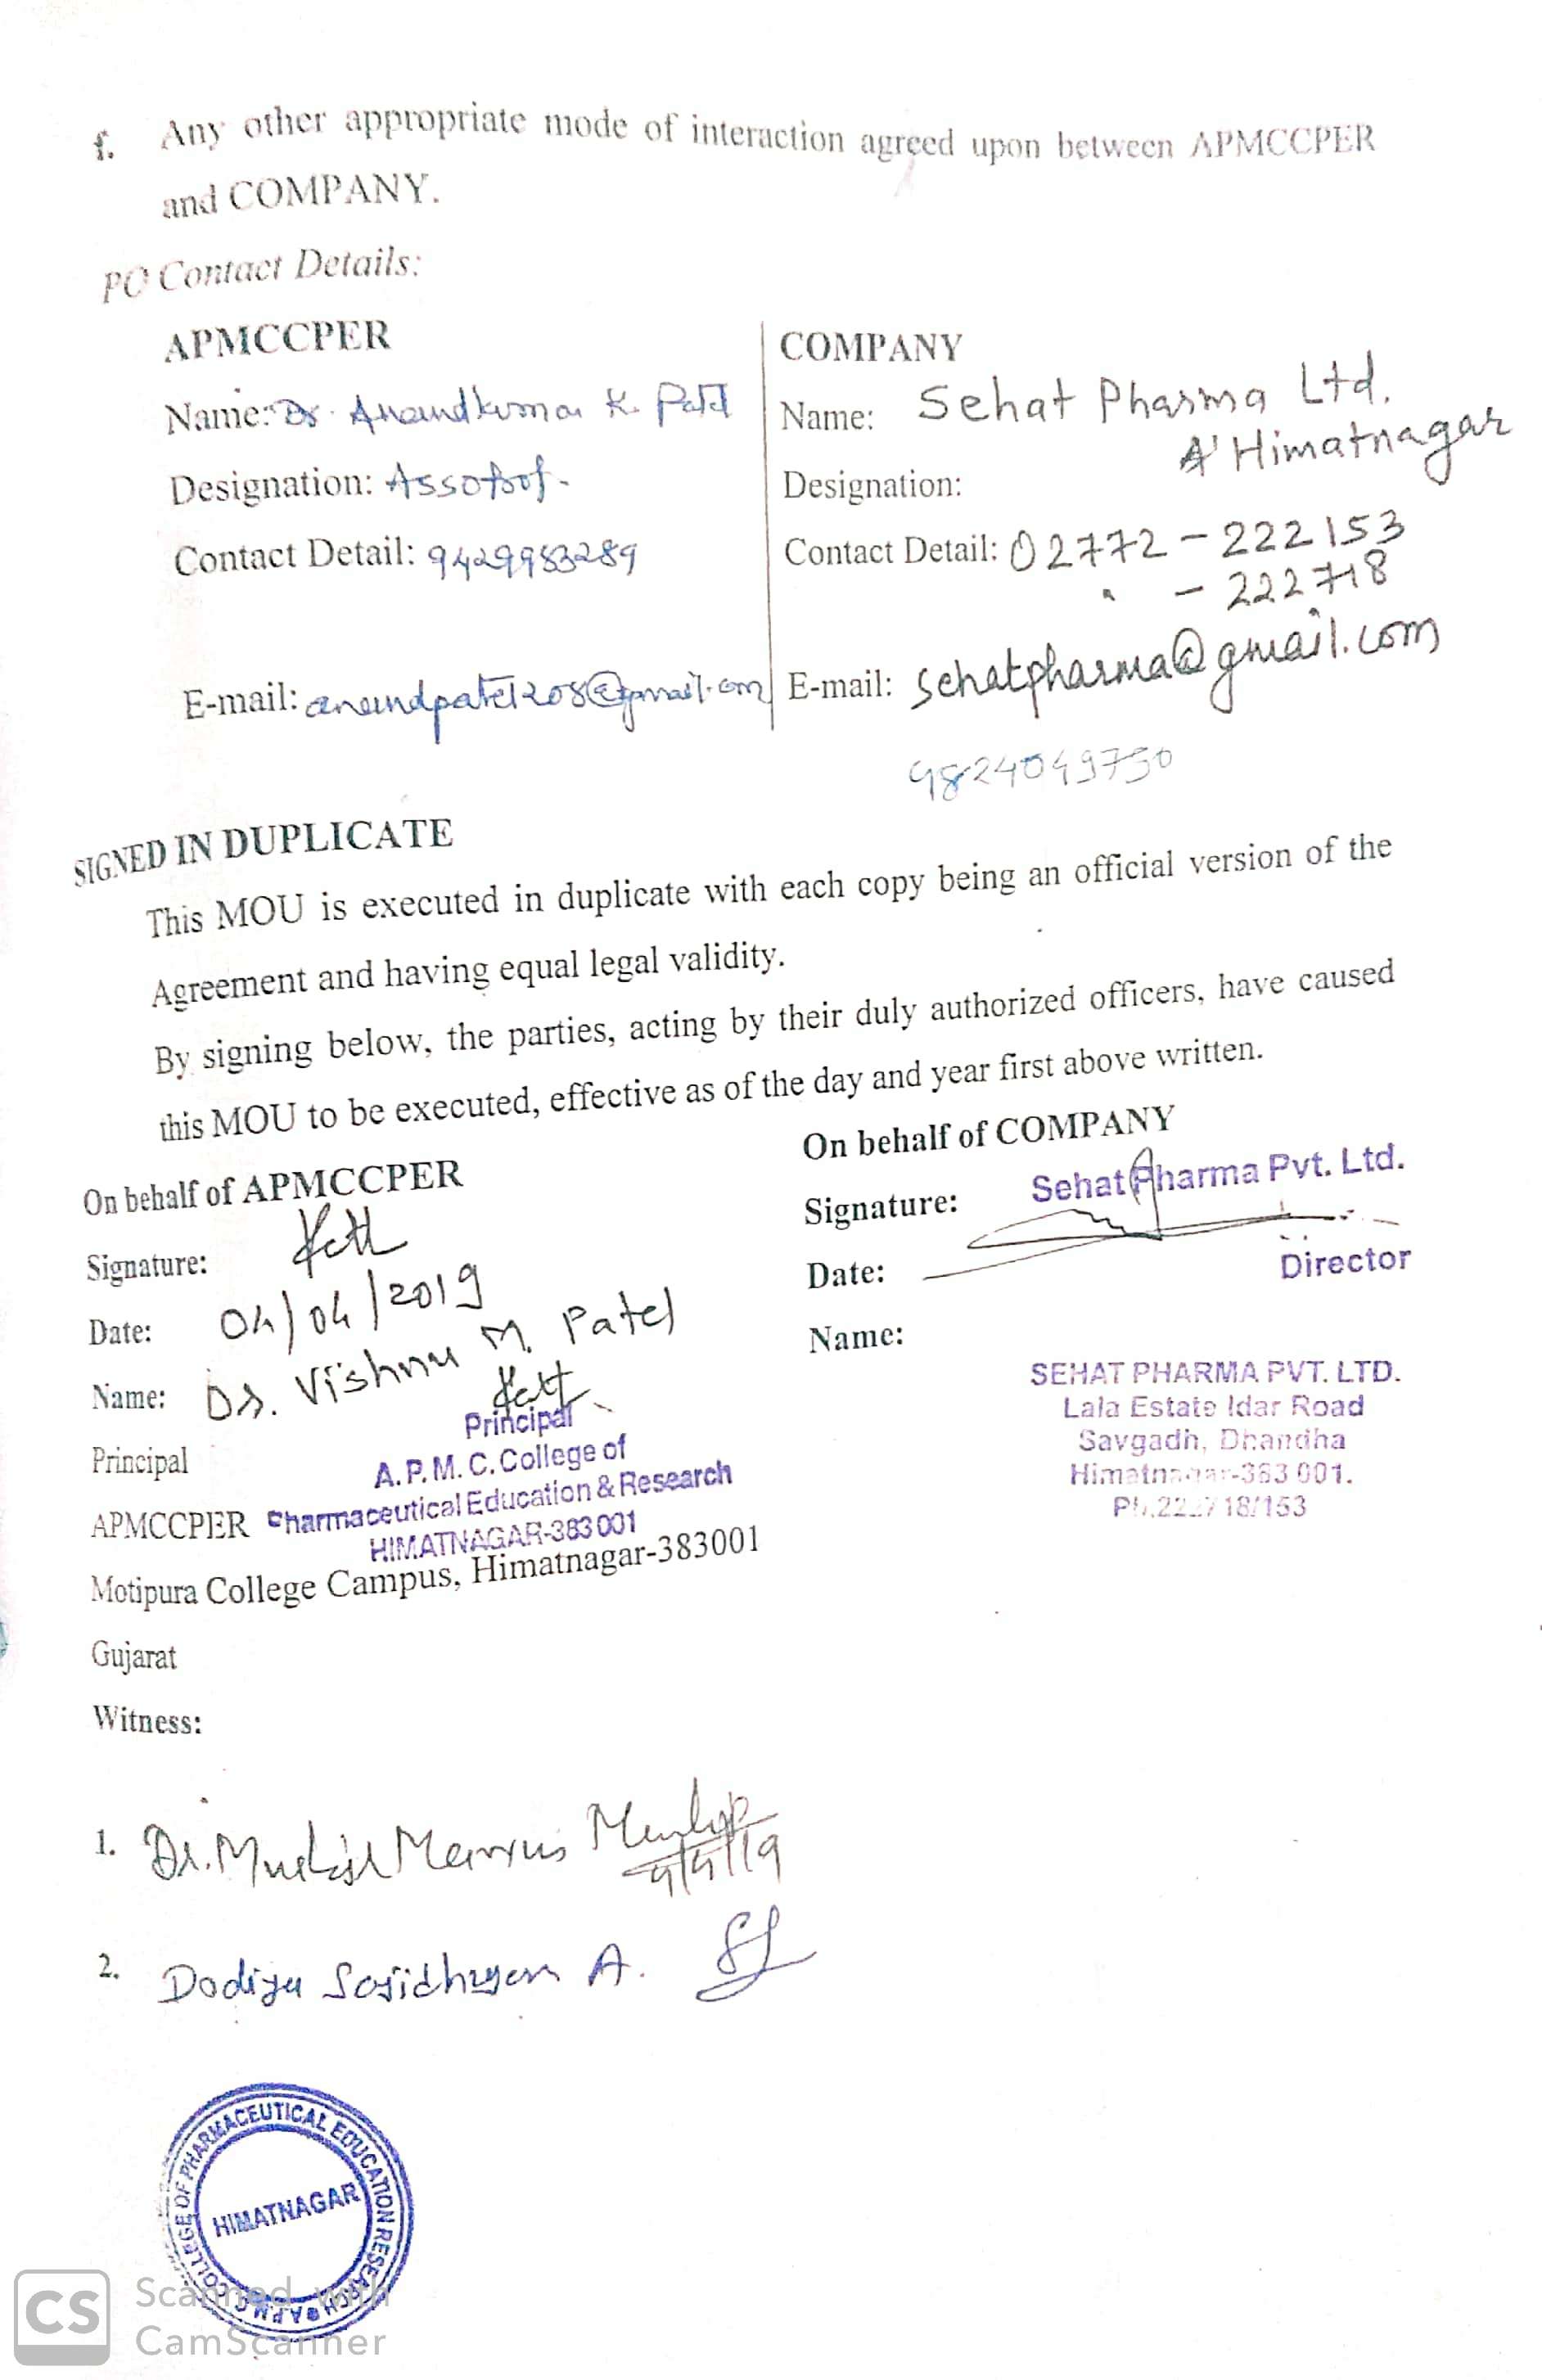 f. Any other appropriate mode of interaction agreed upon between APMCCPER
and COMPANY.
PO Contact Details:
APMCCPER
Name: Dr. Anandkumar K. Patel
Designation: Asso Prof.
Contact Detail: 9429983289
E-mail: anandpatel208@gmail.com
COMPANY
Name: Sehat Pharma Ltd.
Himatnagar
Designation:
Contact Detail: 02772-222153
" - 222718
E-mail: sehatpharma@gmail.com
9824049730
SIGNED IN DUPLICATE
This MOU is executed in duplicate with each copy being an official version of the
Agreement and having equal legal validity.
By signing below, the parties, acting by their duly authorized officers, have caused
this MOU to be executed, effective as of the day and year first above written.
On behalf of APMCCPER
Signature:
Date: 04/04/2019
Name: Dr. Vishnu M. Patel
Principal
A.P.M.C. College of
Principal
Pharmaceutical Education & Research
APMCCPER
HIMATNAGAR-383001
Motipura College Campus, Himatnagar-383001
Gujarat
On behalf of COMPANY
Signature: Sehat Pharma Pvt. Ltd.
Date:
Director
Name:
SEHAT PHARMA PVT. LTD.
Lala Estate Idar Road
Savgadh, Dhandha
Himatnagar-383 001.
Ph.222718/153
Witness:
1. Dr.
4/4/19
2. Dodiya A.
COLLEGE OF PHARMACEUTICAL EDUCATION RESEARCH A.P.M.C
HIMATNAGAR
CS
Scanned with
CamScanner